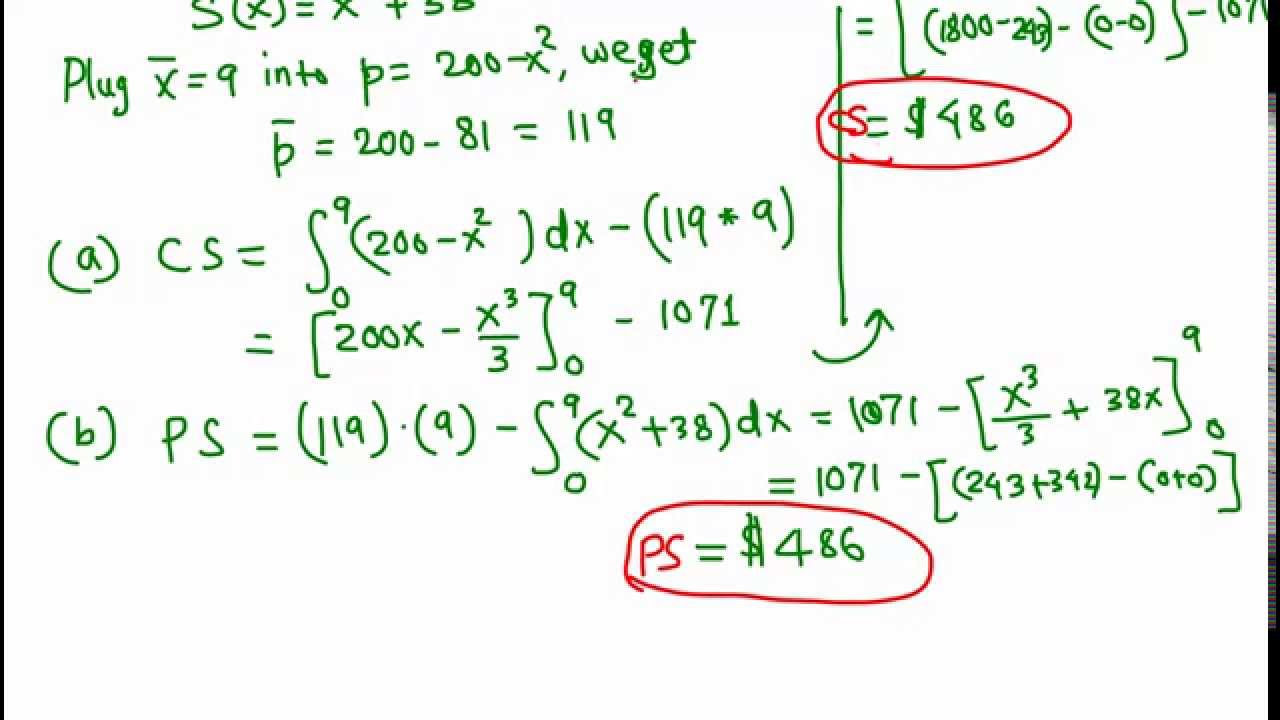 S(x) = x² + 38
Plug x̄ = 9 into p = 200 - x², we get
p̄ = 200 - 81 = 119
(a) CS = ∫₀⁹ (200 - x²) dx - (119 * 9)
= [200x - x³/3]₀⁹ - 1071
= [(1800 - 243) - (0-0)] - 1071
CS = $486
(b) PS = (119)·(9) - ∫₀⁹ (x² + 38) dx = 1071 - [x³/3 + 38x]₀⁹
= 1071 - [(243 + 342) - (0+0)]
PS = $486